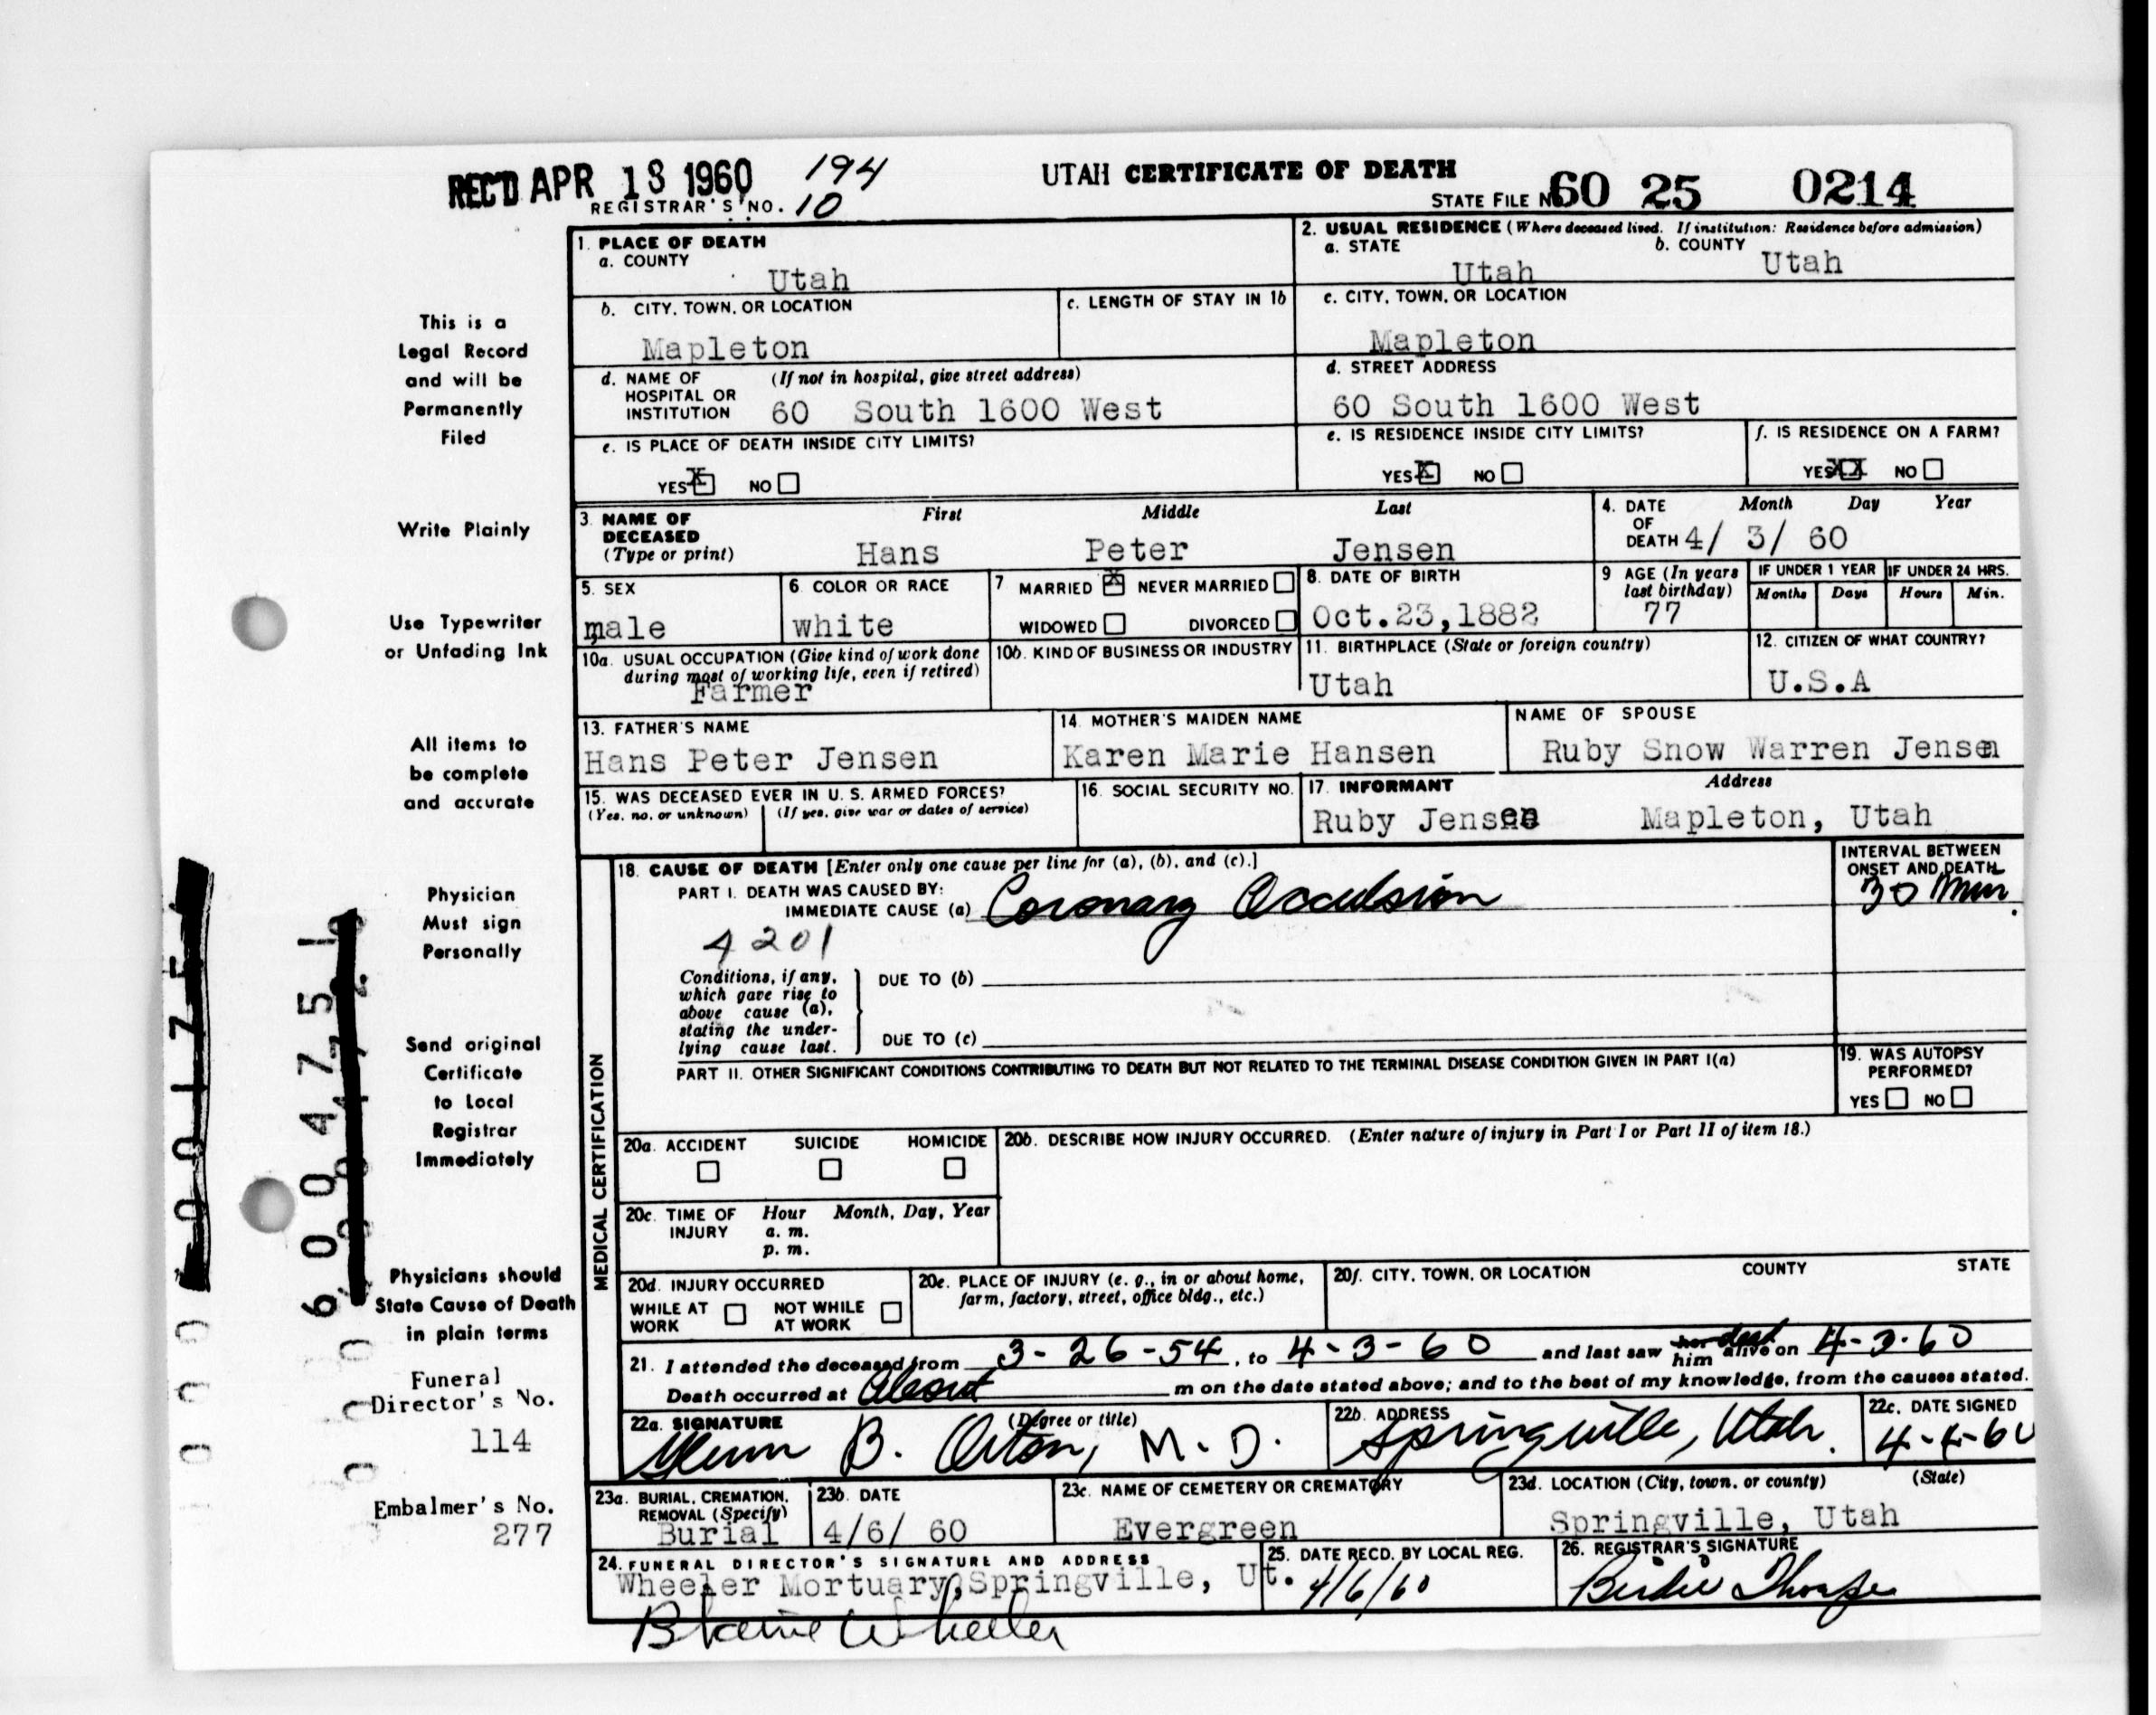 REC'D APR 13 1960
194
UTAH CERTIFICATE OF DEATH
REGISTRAR'S NO. 10
STATE FILE NO. 60 25 0214
1. PLACE OF DEATH
a. COUNTY
Utah
2. USUAL RESIDENCE (Where deceased lived. If institution: Residence before admission)
a. STATE
Utah
b. COUNTY
Utah
b. CITY, TOWN, OR LOCATION
Mapleton
c. LENGTH OF STAY IN 1b
c. CITY, TOWN, OR LOCATION
Mapleton
d. NAME OF HOSPITAL OR INSTITUTION (If not in hospital, give street address)
60 South 1600 West
d. STREET ADDRESS
60 South 1600 West
e. IS PLACE OF DEATH INSIDE CITY LIMITS?
YES X NO
e. IS RESIDENCE INSIDE CITY LIMITS?
YES X NO
f. IS RESIDENCE ON A FARM?
YES XX NO
3. NAME OF DECEASED (Type or print)
First Middle Last
Hans Peter Jensen
4. DATE OF DEATH
Month Day Year
4/ 3/ 60
5. SEX
male
6. COLOR OR RACE
white
7 MARRIED X NEVER MARRIED
WIDOWED DIVORCED
8. DATE OF BIRTH
Oct.23,1882
9 AGE (In years last birthday)
77
IF UNDER 1 YEAR
Months Days
IF UNDER 24 HRS.
Hours Min.
10a. USUAL OCCUPATION (Give kind of work done during most of working life, even if retired)
Farmer
10b. KIND OF BUSINESS OR INDUSTRY
11. BIRTHPLACE (State or foreign country)
Utah
12. CITIZEN OF WHAT COUNTRY?
U.S.A
13. FATHER'S NAME
Hans Peter Jensen
14. MOTHER'S MAIDEN NAME
Karen Marie Hansen
NAME OF SPOUSE
Ruby Snow Warren Jensen
15. WAS DECEASED EVER IN U. S. ARMED FORCES?
(Yes, no, or unknown) (If yes, give war or dates of service)
16. SOCIAL SECURITY NO.
17. INFORMANT
Address
Ruby Jensen Mapleton, Utah
MEDICAL CERTIFICATION
18. CAUSE OF DEATH [Enter only one cause per line for (a), (b), and (c).]
PART I. DEATH WAS CAUSED BY:
IMMEDIATE CAUSE (a) Coronary Occulsion
INTERVAL BETWEEN ONSET AND DEATH
30 Min.
4201
Conditions, if any,
which gave rise to
above cause (a),
stating the under-
lying cause last.
DUE TO (b)
DUE TO (c)
PART II. OTHER SIGNIFICANT CONDITIONS CONTRIBUTING TO DEATH BUT NOT RELATED TO THE TERMINAL DISEASE CONDITION GIVEN IN PART I(a)
19. WAS AUTOPSY PERFORMED?
YES NO
20a. ACCIDENT SUICIDE HOMICIDE
20b. DESCRIBE HOW INJURY OCCURRED. (Enter nature of injury in Part I or Part II of item 18.)
20c. TIME OF INJURY
Hour Month, Day, Year
a. m.
p. m.
20d. INJURY OCCURRED
WHILE AT WORK NOT WHILE AT WORK
20e. PLACE OF INJURY (e. g., in or about home, farm, factory, street, office bldg., etc.)
20f. CITY, TOWN, OR LOCATION COUNTY STATE
21. I attended the deceased from 3-26-54, to 4-3-60 and last saw her him dead alive on 4-3-60
Death occurred at About m on the date stated above; and to the best of my knowledge, from the causes stated.
22a. SIGNATURE (Degree or title)
Glenn B. Orton, M.D.
22b. ADDRESS
Springville, Utah.
22c. DATE SIGNED
4-4-60
23a. BURIAL, CREMATION, REMOVAL (Specify)
Burial
23b. DATE
4/6/ 60
23c. NAME OF CEMETERY OR CREMATORY
Evergreen
23d. LOCATION (City, town, or county) (State)
Springville, Utah
24. FUNERAL DIRECTOR'S SIGNATURE AND ADDRESS
Wheeler Mortuary, Springville, Ut.
Blaine Wheeler
25. DATE RECD. BY LOCAL REG.
4/6/60
26. REGISTRAR'S SIGNATURE
Birdie Thorpe
This is a
Legal Record
and will be
Permanently
Filed
Write Plainly
Use Typewriter
or Unfading Ink
All items to
be complete
and accurate
Physician
Must sign
Personally
Send original
Certificate
to Local
Registrar
Immediately
Physicians should
State Cause of Death
in plain terms
Funeral
Director's No.
114
Embalmer's No.
277
6004751